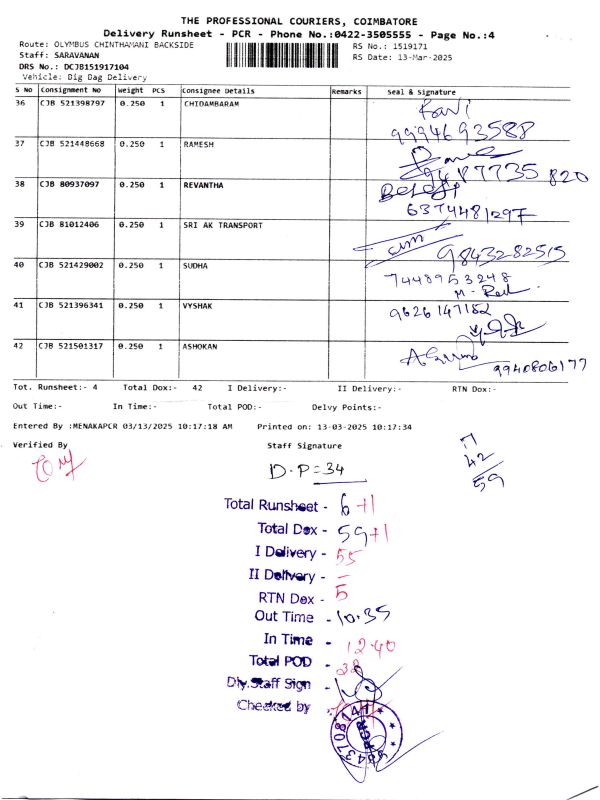 THE PROFESSIONAL COURIERS, COIMBATORE
Delivery Runsheet - PCR - Phone No.:0422-3505555 - Page No.:4
Route: OLYMBUS CHINTHAMANI BACKSIDE
RS No.: 1519171
Staff: SARAVANAN
RS Date: 13-Mar-2025
DRS No.: DCJB151917104
Vehicle: Big Dag Delivery
S No Consignment No Weight PCS Consignee Details Remarks Seal & Signature
36 CJB 521398797 0.250 1 CHIDAMBARAM
Ravi
9994693588
37 CJB 521448668 0.250 1 RAMESH
9487735 820
38 CJB 80937097 0.250 1 REVANTHA
6374481297
39 CJB 81012406 0.250 1 SRI AK TRANSPORT
9843282515
40 CJB 521429002 0.250 1 SUDHA
7448953248
41 CJB 521396341 0.250 1 VYSHAK
9626147152
42 CJB 521501317 0.250 1 ASHOKAN
9940806177
Tot. Runsheet:- 4 Total Dox:- 42 I Delivery:- II Delivery:- RTN Dox:-
Out Time:- In Time:- Total POD:- Delvy Points:-
Entered By :MENAKAPCR 03/13/2025 10:17:18 AM Printed on: 13-03-2025 10:17:34
Verified By Staff Signature
42
59
D.P=34
Total Runsheet - 6+1
Total Dox - 59+1
I Delivery - 55
II Delivery - –
RTN Dox - 5
Out Time - 10.35
In Time - 12.40
Total POD - 38
Dly.Staff Sign -
Checked by -